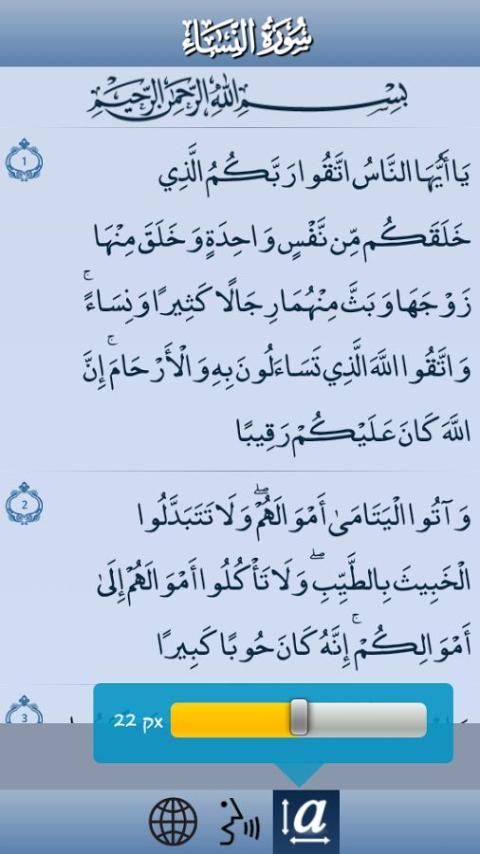 سُورَةُ النِّسَاءِ
بِسْمِ اللَّهِ الرَّحْمَنِ الرَّحِيمِ
1
يَا أَيُّهَا النَّاسُ اتَّقُوا رَبَّكُمُ الَّذِي
خَلَقَكُم مِّن نَّفْسٍ وَاحِدَةٍ وَخَلَقَ مِنْهَا
زَوْجَهَا وَبَثَّ مِنْهُمَا رِجَالًا كَثِيرًا وَنِسَاءً ۚ
وَاتَّقُوا اللَّهَ الَّذِي تَسَاءَلُونَ بِهِ وَالْأَرْحَامَ ۚ إِنَّ
اللَّهَ كَانَ عَلَيْكُمْ رَقِيبًا
2
وَآتُوا الْيَتَامَىٰ أَمْوَالَهُمْ ۖ وَلَا تَتَبَدَّلُوا
الْخَبِيثَ بِالطَّيِّبِ ۖ وَلَا تَأْكُلُوا أَمْوَالَهُمْ إِلَىٰ
أَمْوَالِكُمْ ۚ إِنَّهُ كَانَ حُوبًا كَبِيرًا
3
22 px
a